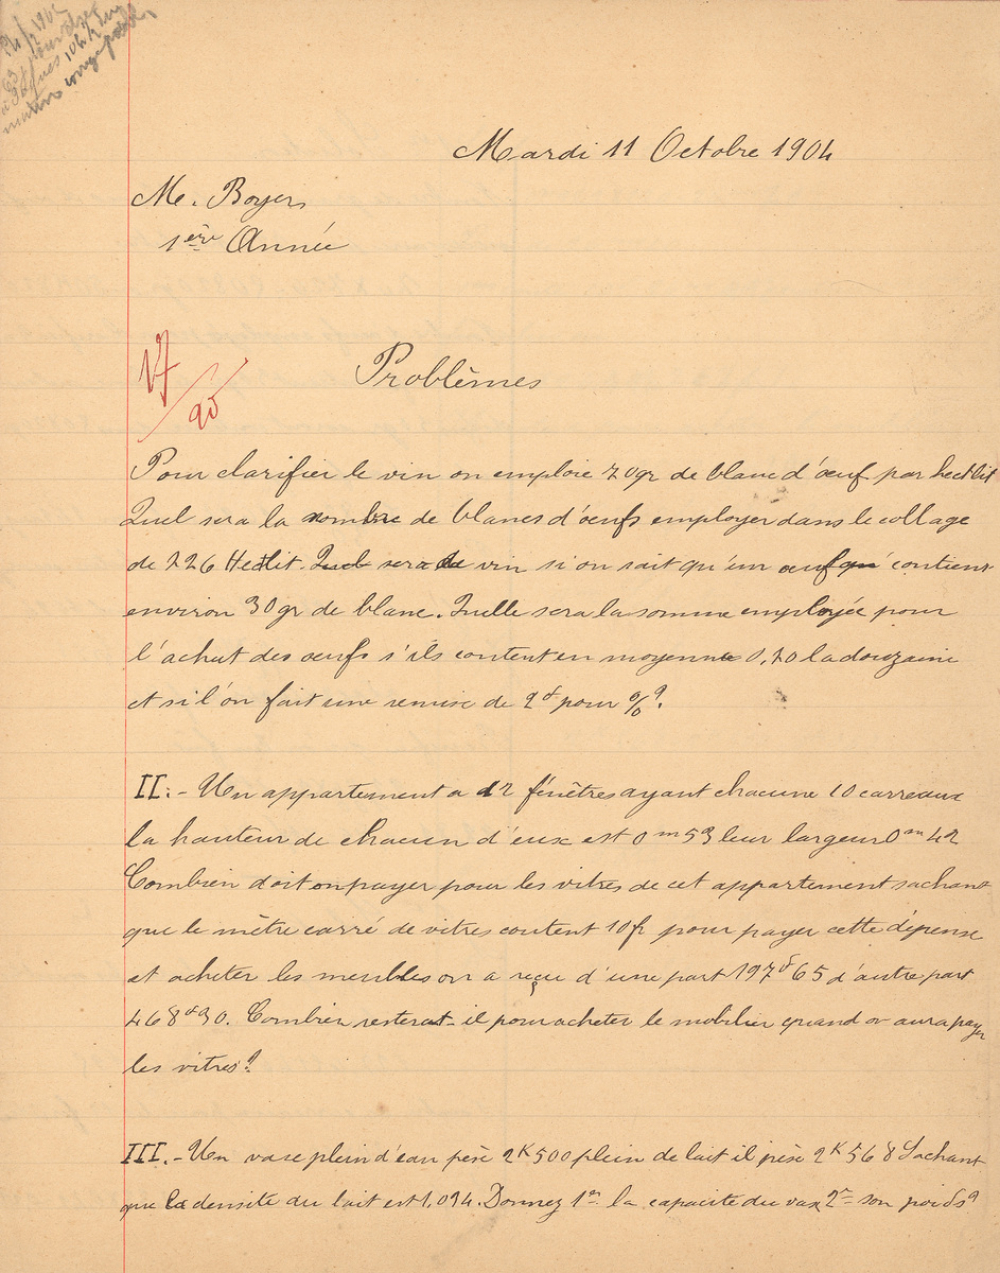 Mardi 11 Octobre 1904
M. Boyer
1ère Année
17/20
Problèmes
Pour clarifier le vin on emploie 20gr de blanc d'œuf par hectlit
Quel sera la nombre de blancs d'œufs employer dans le collage
de 226 Hectlit. Quel sera de vin si on sait qu'un œuf qu' contient
environ 30gr de blanc. Quelle sera la somme employée pour
l'achat des œufs s'ils coutent en moyenne 0,70 la douzaine
et si l'on fait une remise de 2f pour %?
II.- Un appartement a 12 fênêtres ayant chacune 10 carreaux
la hauteur de chacun d'eux est 0m53 leur largeur 0m42
Combien doit on payer pour les vitres de cet appartement sachant
que le mètre carré de vitres coutent 10fr pour payer cette dépense
et acheter les meubles on a reçu d'une part 197f65 d'autre part
468f90. Combien resterat-il pour acheter le mobilier quand on aura payer
les vitres?
III.- Un vase plein d'eau pèse 2K500 plein de lait il pèse 2K568 Sachant
que la densité du lait est 1,034. Donnez 1er la capacité du vax 2e son poids?